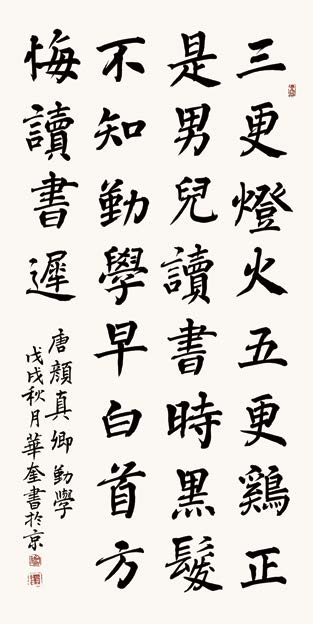 三更燈火五更鷄正
是男兒讀書時黑髮
不知勤學早白首方
悔讀書遲
唐顏真卿勤學
戊戌秋月華奎書於京